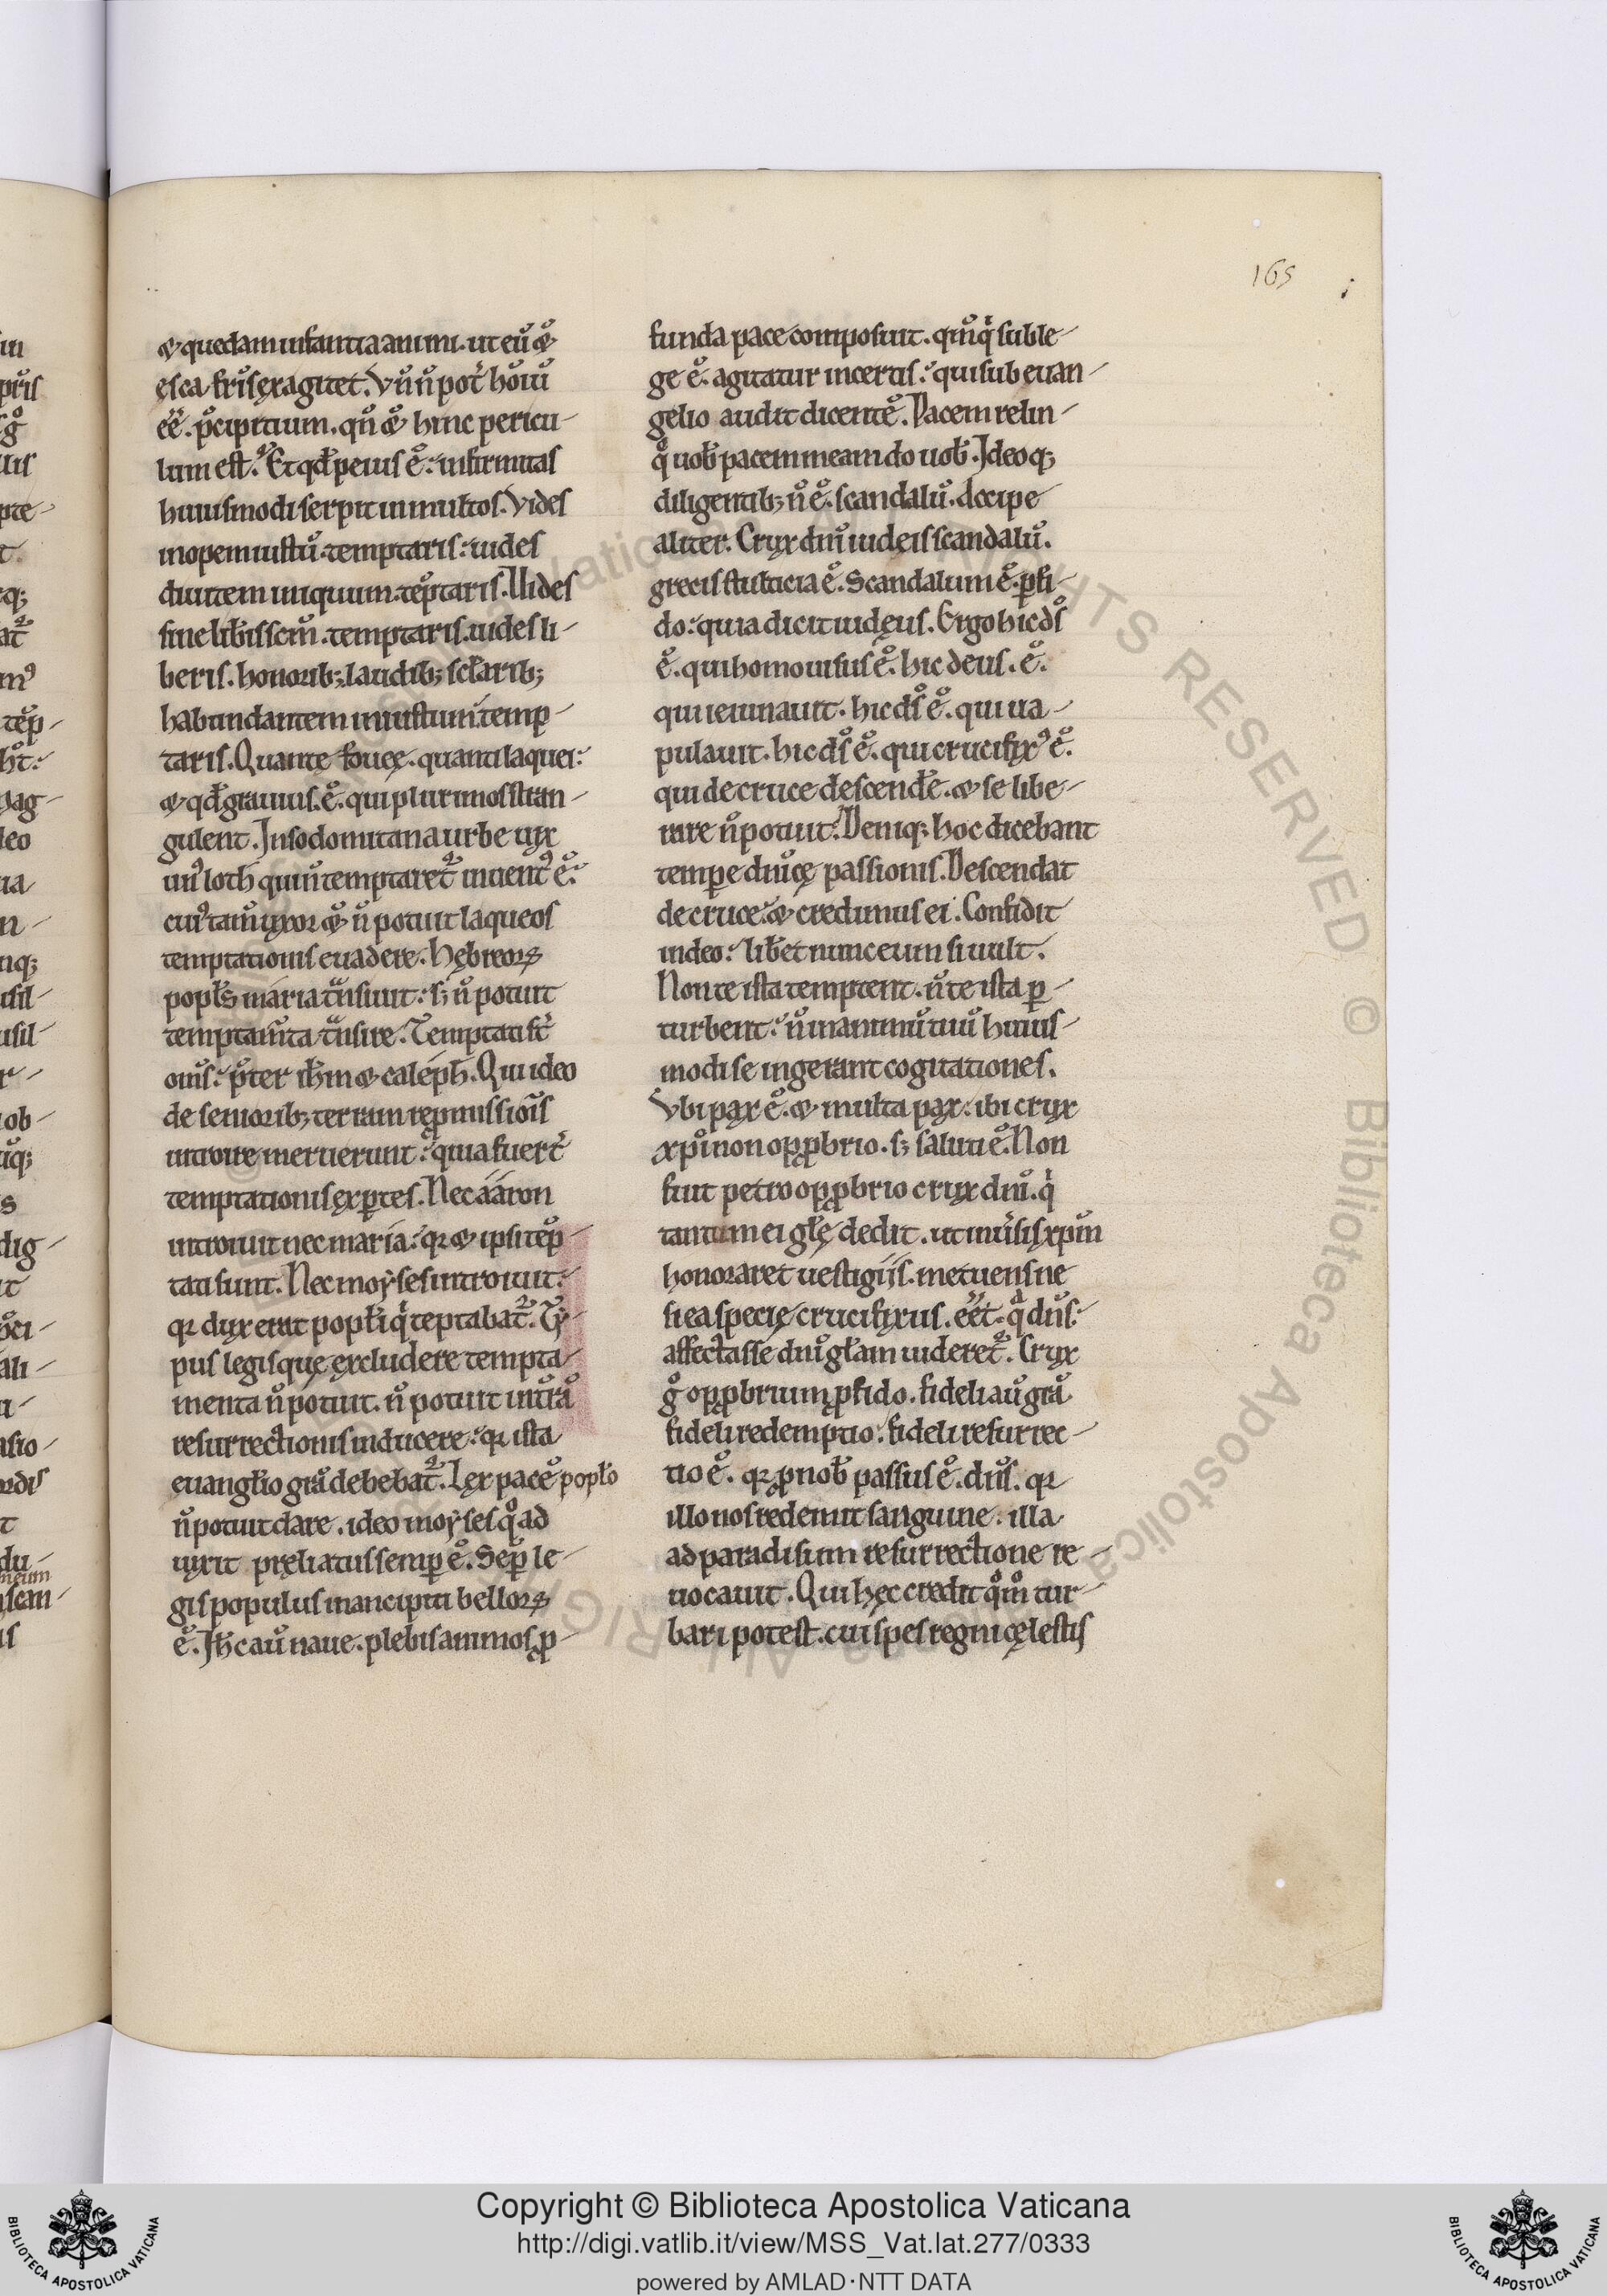 165
& quedam infantia animi. ut eū &
esca fr̄is exagitet. Vn̄ n̄ pot̄ hōiū
eē. p̄cipitium. qn̄ & hinc pericu-
lum est. Et qđ peius ē. infirmitas
huiusmodi serpit in multos. Vides
inopem iustū. temptaris. uides
diuitem iniquum. tēptaris. Uides
sine lib̄is sc̄m. temptaris. uides li-
beris. honorib; laudib; sc̄larib;
habundantem iniustum. temp-
taris. Quante fouee. quanti laquei.
& qđ grauius. ē. qui plurimos stran-
gulent. In sodomitana urbe uix
un' loth qui n̄ temptaret~ inuent' ē.
cui' tam̄ uxor & n̄ potuit laqueos
temptationis euadere. hębreoꝝ
popl's maria t̄nsiuit. s; n̄ potuit
temptam̄ta t̄nsire. Temptati st̄
om̄s. p̄ter ih̄m & caleph. Qui ideo
de seniorib; terram repmissiōis
introire meruerunt. quia fuer̄t
temptationis exꝑtes. Nec aaron
introiuit nec maria. qꝛ & ipsi tēp-
tati sunt. Nec moyses introiuit.
qꝛ dux erat popl'i q̄ teptabat~. Ty-
pus legis que excludere tempta-
menta n̄ potuit. n̄ potuit int̄ rā
resurrectionis inducere. qꝛ ista
euangl'io grā debebat~. Lex pacē popl'o
n̄ potuit dare. ideo moyses qᵒad
uixit preliatus semꝑ ē. Seꝑ le-
gis populus mancipium belloꝝ
ē. Ih̄c aū naue. plebis animos ꝓ-
funda pace composuit. qm̄ q̄ sub le-
ge ē. agitatur incertis. qui sub euan-
gelio audit dicentē. Pacem relin-
qᵒ uob̄ pacem meam do uob̄. Ideoq;
diligentib; n̄ ē. scandalū. Accipe
aliter. Crux dn̄i iudeis scandalū.
grecis stulticia ē. Scandalum ē. ꝑfi-
do. quia dicit iudęus. Ergo hic ds̄
ē. qui homo uisus ē. hic deus. ē.
qui ieiunauit. hic ds̄ ē. qui ua-
pulauit. hic ds̄ ē. qui crucifix' ē.
qui de cruce descendē. & se libe-
rare n̄ potuit. Deniq; hoc dicebant
tempe diuīcę passionis. Descendat
de cruce. & credimus ei. Confidit
in deo. lib̄et nunc eum si uult.
Non te ista temptent. n̄ te ista ꝑ-
turbent. n̄ in animū tuū huius-
modi se ingerant cogitationes.
Vbi pax ē. & multa pax. ibi crux
xp̄i non opꝓbrio. s; saluti ē. Non
fuit petro opꝓbrio crux dn̄i. q̄
tantum ei gl'ę dedit. ut inuersis xp̄m
honoraret uestigiis. metuens ne
si ea specie crucifixus. eēt. q̄ dn̄s.
affectasse dn̄i gl'am uideret~. Crux
gᵒ opꝓbrium ꝑfido. fideli aū grā
fideli redemptio. fideli resurrec-
tio ē. qꝛ ꝓ nob̄ passus ē. dn̄s. qꝛ
illo nos redemit sanguine. illa
ad paradisum resurrectione re-
uocauit. Qui hęc credit qᵒmᵒ tur-
bari potest. cui spes regni cęlestis
Copyright © Biblioteca Apostolica Vaticana
http://digi.vatlib.it/view/MSS_Vat.lat.277/0333
powered by AMLAD·NTT DATA